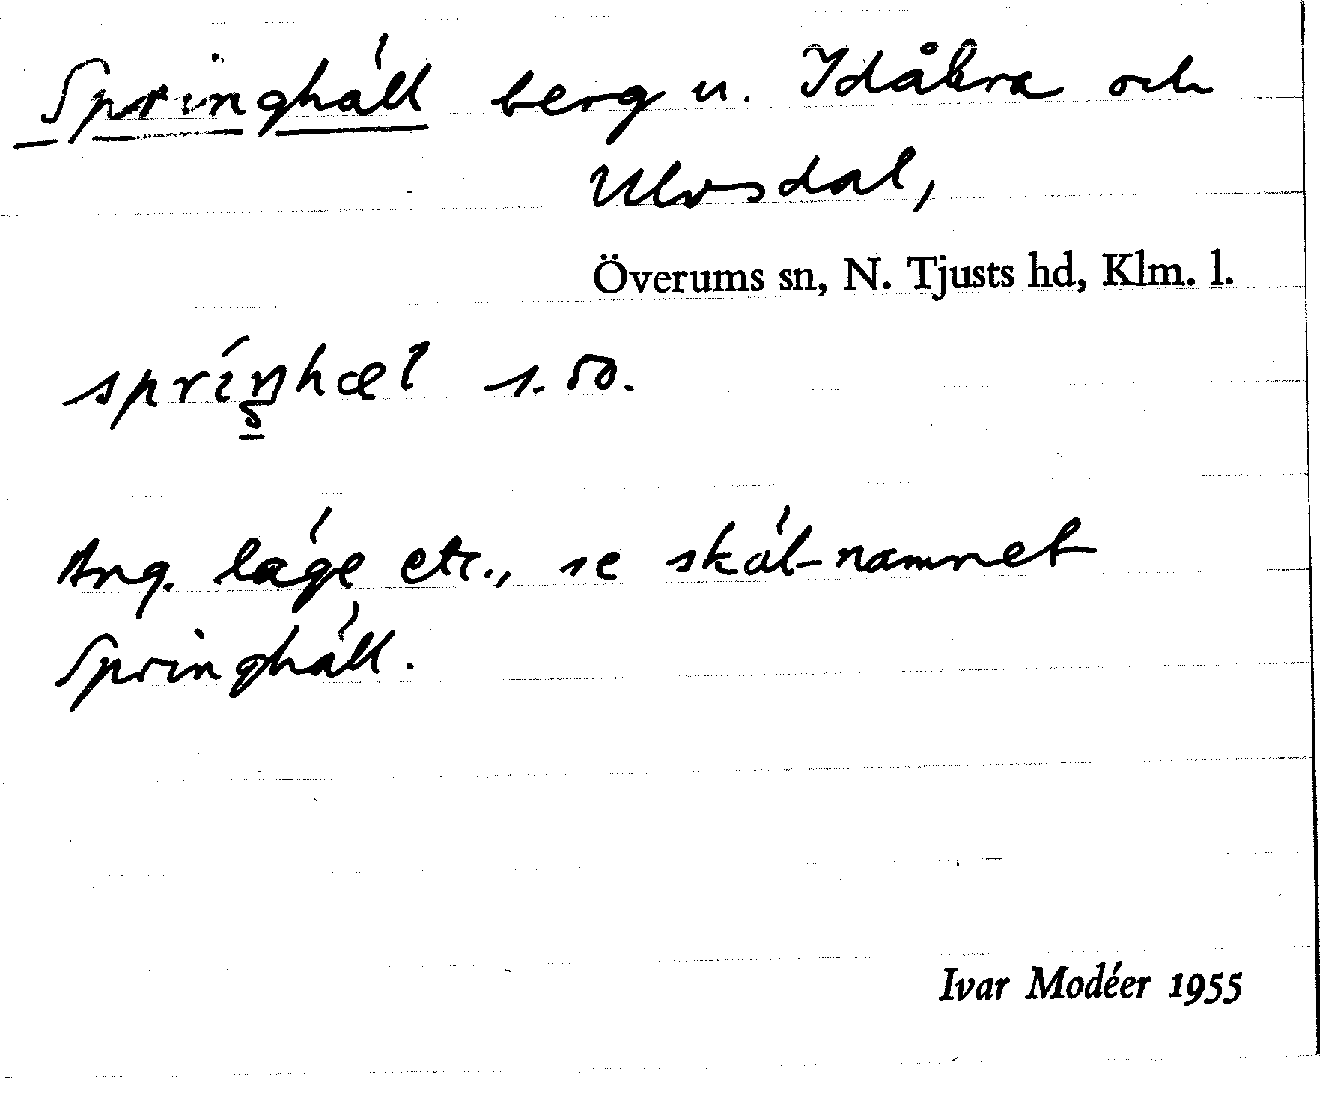 Springháll berg u. Idåkra och
Ulvsdal,
Överums sn, N. Tjusts hd, Klm. l.
s. 50.
Ang. láge etc., se skál-namnet
Springháll.
Ivar Modéer 1955